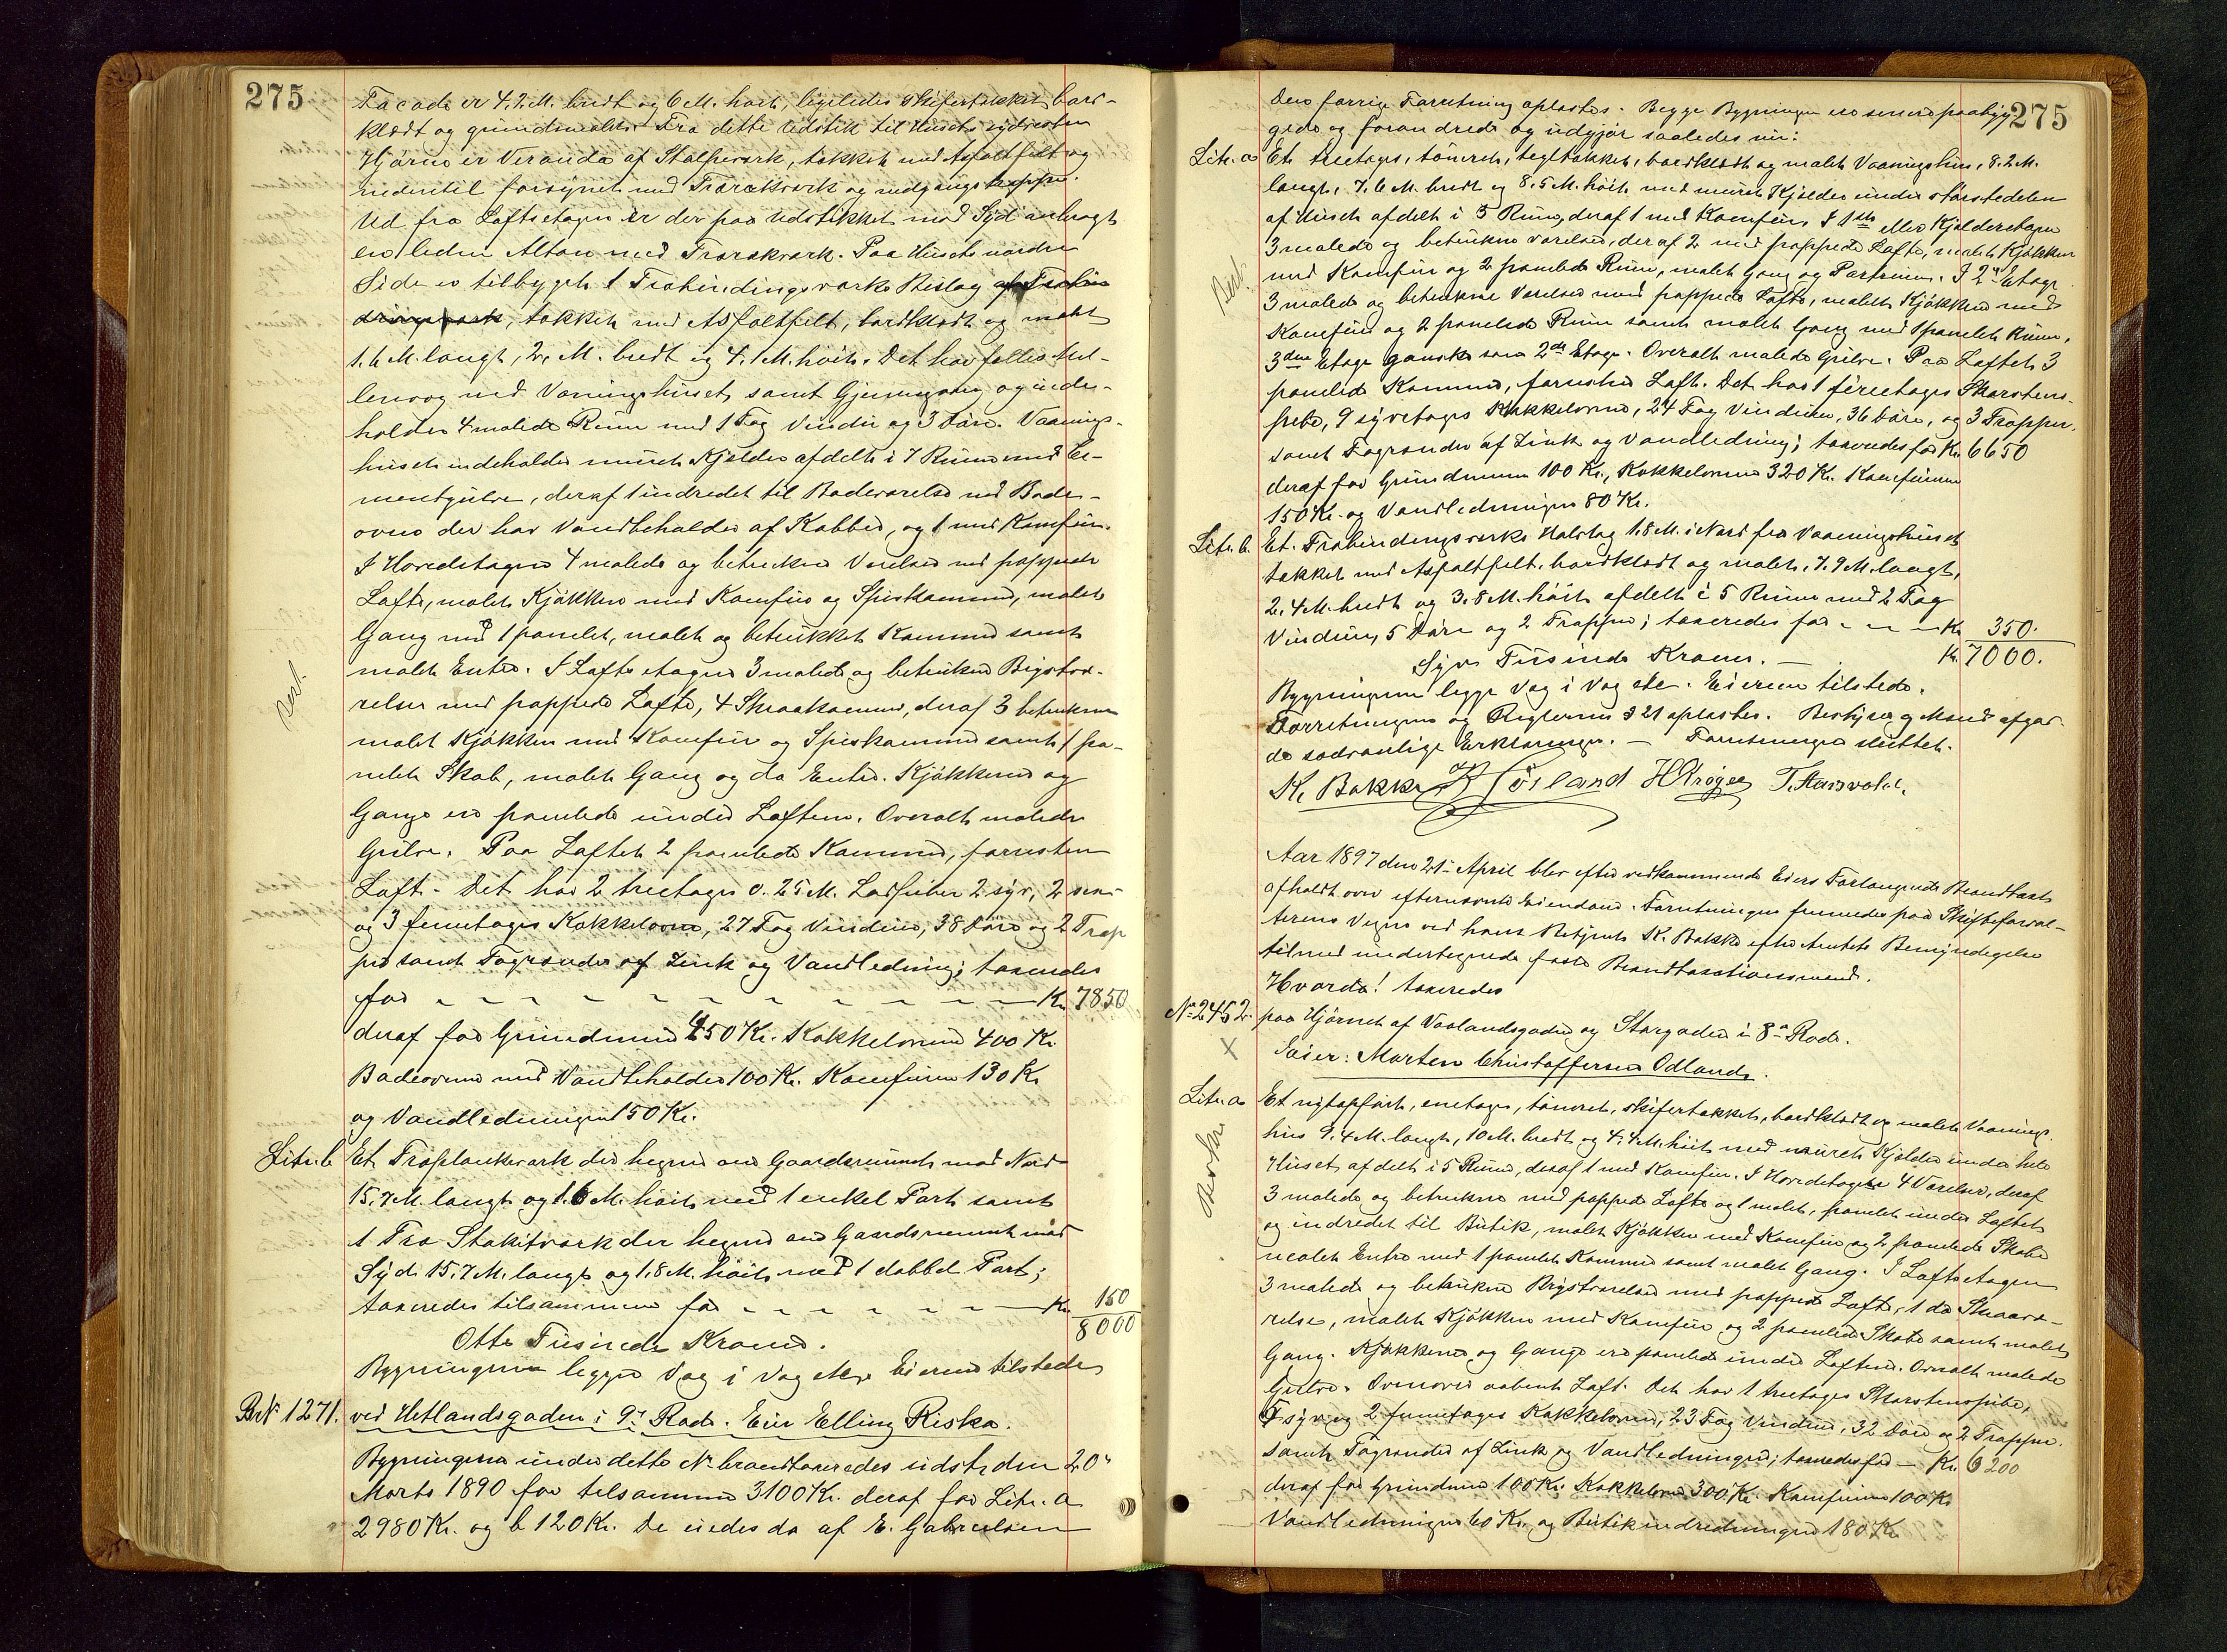 275
Facade er 4.7 M. bredt og 6 M. høit, ligeledes skifertækket, bord-
klædt og grundmuret. Fra dette Udstik til Husets sydvestre
Hjørne er Veranda af Stolpeværk, tækket med Asfaltfilt og
nedentil forsynet med Træværk og nedgangstrappe.
Ud fra Loftsetagen er der paa Udstikket mod Syd anbragt
en liden Altan med Trærækværk. Paa Husets nordre
Side er tilbygget 1 Træbindingsværks Bislag af Træbin
dingsværk, tækket med Asfaltfilt, bordklædt og malet
1.6 M. langt, 2. M. bredt og 4.1 M. høit. Det har fælles Mel-
lemvæg med Vaaningshuset samt Gjennemgang og inde-
holder 4 malede Rum med 1 Fag Vindu og 3 Døre. Vaanings-
huset indeholder muret Kjelder afdelt i 7 Rum med Ce-
mentgulve, deraf 1 indredet til Badeværelse med Bade-
ovn der har Vandbeholder af Kobber, og 1 med Komfur.
I Hovedetagen 4 malede og betrukne Værelser med pappede
Lofte, malet Kjøkken med Komfur og Spiskammer, malet
Gang med 1 panelet, malet og betrukket Kammer samt
malet Entre. I Loftsetagen 3 malede og betrukne Bigstvæ-
relser med pappede Lofte, 4 Skraakammer, deraf 3 betrukne
malet Kjøkken med Komfur og Spiskammer samt 1 pa-
nelet Skab, malet Gang og do Entre. Kjøkkener og
Gange ere panelede under Loftene. Overalt malede
Gulve. Paa Loftet 2 panelede Kammer, forresten
Loft. Det har 2 treetages 0.25 M. Ladpiber 2 syv, 2 sex-
og 3 femetages Kakkelovne, 27 Fag Vinduer, 38 Døre og 2 Trap
per samt Tagrender af Zink og Vandledning; taxeredes
for Kr. 7850
deraf for Grundmuren 450 Kr. Kakkelovnene 400 Kr.
Badeovnen med Vandbeholder 100 Kr. Komfurene 130 Kr
og Vandledningen 150 Kr.
Litr. b Et Træplankeværk der hegner om Gaardsrummet mod Nord
15.7 M. langt og 1.6 M. høit med 1 enkel Port samt
1 Træ Stakitværk der hegner om Gaardsrummet mod
Syd 15.7 M. langt og 1.8 M. høit med 1 dobbel Port;
taxeredes tilsammen for Kr. 150
8000
Otte Tusinde Kroner.
Bygningerne ligger Væg i Væg etc. Eieren tilstede
Br. N: 1271. ved Hetlandsgaden i 9de Rode. Eier Elling Riska.
Bygningerne under dette No brandtaxeredes sidst den 20de
Marts 1890 for tilsammen 3100 Kr. deraf for Litr. a
2980 Kr. og b 120 Kr. De eiedes da af E. Gabrielsen
Best.
275
Den forrige Forretning oplæstes. Begge Bygninger ere senere paabyg-
gede og forandrede og udgjør saaledes nu:
Litr. a Et treetages, tømret, tegltækket, bordklædt og malet Vaaningshus, 8.2 M.
langt, 7.6 M. bredt og 8.5 M. høit med muret Kjelder under størstedelen
af Huset afdelt i 3 Rum, deraf 1 med Komfur. I 1ste eller Kjelderetagen
3 malede og betrukne Værelser, deraf 2 med pappede Lofte, malet Kjøkken
med Komfur og 2 panelede Rum, malet Gang og Portrum. I 2den Etage
3 malede og betrukne Værelser med pappede Lofte, malet Kjøkken med
Komfur og 2 panelede Rum samt malet Gang med 1 panelet Rum.
3die Etage ganske som 2den Etage. Overalt malede Gulve. Paa Loftet 3
panelede Kammer, forresten Loft. Det har 1 fireetages Skorstens-
pibe, 9 syvetages Kakkelovne, 24 Fag Vinduer, 36 Døre, og 3 Trapper,
samt Tagrender af Zink og Vandledning; taxeredes for Kr. 6650
deraf for Grundmuren 100 Kr., Kakkelovnene 320 Kr. Komfurene
150 Kr. og Vandledningen 80 Kr.
Litr. b. Et Træbindingsværks Halvtag 1.8 M. i Nord fra Vaaningshuset
tækket med Asfaltfilt, bordklædt og malet, 7.9 M. langt,
2.4 M. bredt og 3.8 M. høit afdelt i 5 Rum med 2 Fag
Vinduer, 5 Døre og 2 Trapper; taxeredes for Kr 350.
Syv Tusinde Kroner. Kr. 7000.
Bygningerne ligge Væg i Væg etc. Eieren tilstede.
Forretningen og Reglernes § 21 oplæstes. Bestyrer og Mænd afgav-
de sædvanlige Erklæringer. Forretningen sluttet.
K. Bakke Hörland H Kröger T. Hansvold.
Aar 1897 den 21de April blev efter vedkommende Eiers Forlangende Brandtaxt
afholdt over efternævnte Eiendom. Forretningen fremmedes paa Skifteforval-
terens Vegne ved hans Betjent K. Bakke efter Amtets Bemyndigelse
tilmed undertegnede faste Brandtaxtionsmænd.
Hvorda! taxeredes
No 2452. paa Hjørnet af Vaalandsgaden og Storgaden i 8de Rode.
X
Eier: Morten Christoffersen Odland.
Litr. a Et nyopført, enetages, tømret, skifertækket, bordklædt og malet Vaanings-
hus 9.4 M. langt, 10 M. bredt og 4.4 M. høit med muret Kjelder under hele
Huset, afdelt i 5 Rum, deraf 1 med Komfur. I Hovedetagen 4 Værelser, deraf
3 malede og betrukne med pappede Lofte og 1 malet, panelet under Loftet
og indredet til Butik, malet Kjøkken med Komfur og 2 panelede Skabe
malet Entre med 1 panelet Kammer samt malet Gang. I Loftsetagen
3 malede og betrukne Brystværelser med pappede Lofte, 1 do Skraavæ-
relse, malet Kjøkken med Komfur og 2 panelede Skabe samt malet
Gang. Kjøkkener og Gange ere panelede under Loftene. Overalt malede
Gulve. Ovenover aabent Loft. Det har 1 treetages Skorstenspibe,
7 syv og 2 femetages Kakkelovne, 23 Fag Vinduer, 32 Døre og 2 Trapper.
samt Tagrender af Zink og Vandledninger; taxeredes for Kr. 6200
deraf for Grundmuren 100 Kr. Kakkelovne 300 Kr. Komfurene 100 Kr
Vandledningen 60 Kr. og Butikindredningen 180 Kr
Best.